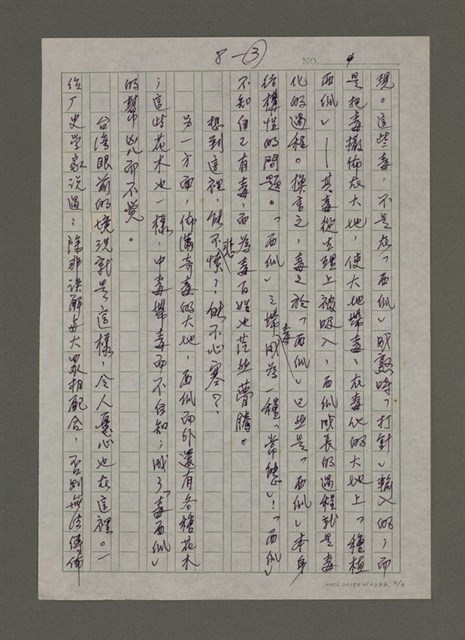 8-(3)
NO. 4
現。這些毒，不是在「西瓜」成熟時「打針」輸入的；而
是把毒撒佈在大地，使大地帶毒，在毒化的大地上「種植
西瓜」——其毒從生理上被吸入，西瓜成長的過程就是毒
化的過程。換言之，毒之於「西瓜」已經是「西瓜」本身
結構性的問題。「西瓜」之帶毒成為一種「常態」！「西瓜」
不知自己有毒，而為毒百姓也茫然瞢瞢。
想到這裡，能不悲憤？能不心寒？？
另一方面，佈滿毒的大地，西瓜而外還有各種花木
；這些花木也一樣，中毒帶毒而不自知；成了「毒西瓜」
的幫凶而不覺。
台灣眼前的境況就是這樣，令人憂心也在這裡。一
位歷史學家說過：除非誤解毒大眾相配合，否則無法傳佈